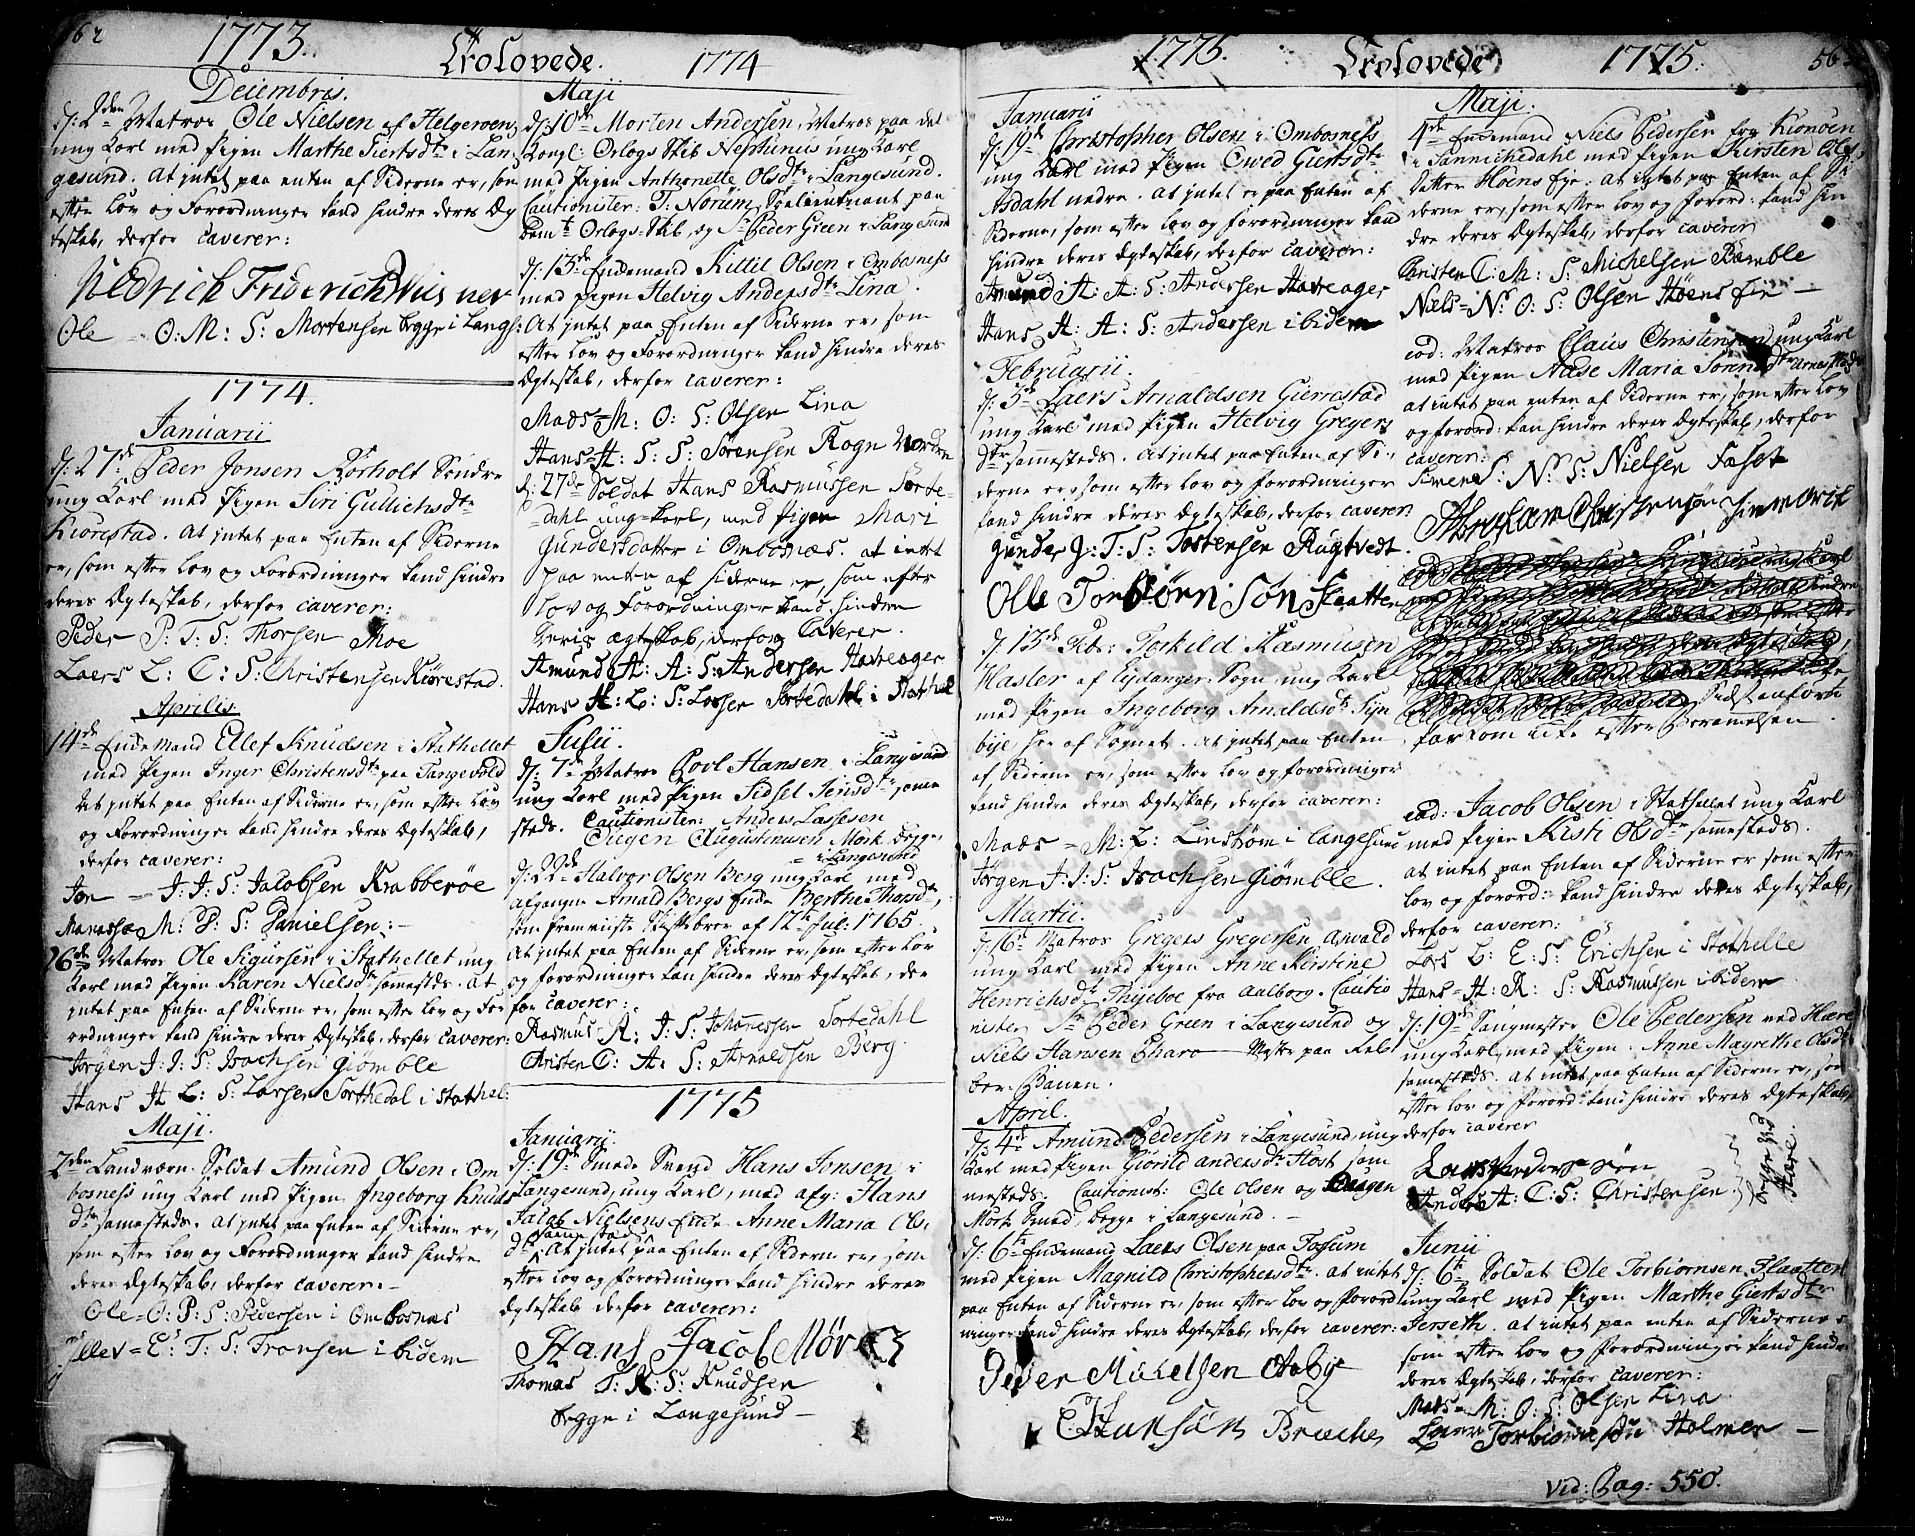 562
1773.
Trolovede.
1774
Decembris.
d: 2den Matros Ole Nielsen af Helgeroen,
ung Karl med Pigen Marthe Siertsdtr i Lan-
gesund. At intet paa enten af Siderne er, som
efter Lov og Forordninger kand hindre deres Æg-
teskab, derfor caverer:
Ole O: M: S: Mortensen begge i Langs:
1774.
Januarii
d: 27de Peder Jonsen Rørholt Søndre
ung Karl med Pigen Siri Gullichsdtr
Kiørestad. At intet paa Enten af Siderne
er, som efter Lov og Forordninger kand hindre
deres Ægteskab, derfor caverer:
Peder P: T: S: Thorsen Moe
Laers L: C: S: Christensen Kiørestad.
Aprilis
14de Enkemand Ellef Knudsen i Stathellet
med Pigen Inger Christensdtr paa Tangevold
At intet paa Enten af Siderne er, som efter Lov
og Forordninger kand hindre deres Ægteskab,
derfor caverer:
Jon J: J: S: Jacobsen Krabberøe
Manasse M: D: S: Danielsen:
26de Matros Ole Sigursen i Stathellet ung
Karl med Pigen Karen Nielsdtr sammestds. At
intet paa Enten af Siderne er, som efter Lov og For-
ordninger kand hindre deres Ægteskab, derfor caverer:
Jørgen J: J: S: Isachsen Giømble
Hans H: L: S: Larsen Sorthedal i Stathel:
Maji.
2den Landværn Soldat Amund Olsen i Om-
bosness ung Karl med Pigen Ingeborg Knuds-
dtr sammesteds. At intet paa Enten af Siderne er,
som efter Lov og Forordninger kand hindre
deres Ægteskab, derfor caverer:
Ole O: P: S: Pedersen i Ombosnæs
Ellev E: T: S: Fransen ibidem
Maji
d: 10de Morten Andersen, Matros paa det
Kongl: Orlogs Skib Neptunus ung Karl
med Pigen Anthonette Olsdtr i Langesund.
Cautionister: T: Norum, Skibslieutnant paa
bemt Orlogs-Skib, og Sr Peder Green i Langesund
d: 13de Enkemand Kittil Olsen i Ombosness
med Pigen Helvig Andersdtr Lina.
At intet paa Enten af Siderne er, som
efter Lov og Forordninger kand hindre deres
Ægteskab, derfor caverer:
Mads M: O: S: Olsen Lina
Hans H: S: S: Sørensen Rogn Nordre
d: 27de Soldat Hans Rasmussen Sorte-
dahl ung karl, med Pigen Mari
Gundersdatter i Ombosnæs. at intet
paa enten af siderne er, som efter
Lov og Forordninger kand hindre
deris ægteskab, derfor Caverer.
Amund A: A: S: Andersen Havreager
Hans H: L: S: Larsen Sortedahl i Stathel
Julii.
d: 7de Matros Povl Hansen i Langesund
ung Karl med Pigen Sidsel Jensdtr, samme
steds. Cautionister: Anders Lassesen
Augustinusen Mørk begge
i Langesund
d: 22de Halvor Olsen Berg ung Karl med
afgangne Arnald Bergs Enke Berthe Thorsdtr,
som fremviiste Skiftebrev af 12te Jul: 1765
At intet paa Enten af Siderne er, som efter Lov
og forordninger kan hindre deres Ægteskab, der
for caverer:
Rasmus R: J: S: Johannessen Sortedahl
Christen C: A: S: Arnoldsen Berg.
1775
Januarii.
d: 19de Smede Svend Hans Jonsen i
Langesund, ung Karl, med afg: Hans
Jacob Nielsens Enke Anne Maria Ols-
dtr sammestd: At intet paa Enten af Siderne er, som
efter Lov og Forordninger kand hindre deres
Ægteskab derfor caverer:
Hans Jacob Mørch
Thomas T: K: S: Knudsen
begge i Langesund
1775.
Trolovede
1775.
563
Januarii
d: 19de Christopher Olsen i Ombosness
ung Karl med Pigen Gierts dtr
Asdahl nedre. At intet er paa Enten af
Siderne, som efter Lov og forordninger kan
hindre deres Ægteskab, derfor caverer:
Amund A: A: S: Andersen Havreager
Hans H: A: S: Andersen ibidem
Februarii.
d: 5te Laers Arnaldsen Gierrestad
ung Karl med Pigen Helvig Gregers
dtr sammesteds. At intet paa Enten af Si-
derne er, som efter Lov og forordninger
kand hindre deres Ægteskab, derfor caverer:
Gunder G: T: S: Tostensen Rugtvedt.
Olle Torbiørn Søn Flaatten
d: 13de Feb: Torkild Rasmusen
Hasler af Eydanger Sogn, ung Karl
med Pigen Ingeborg Arnaldsdtr
bye, her af Sognet. At intet paa Enten
af Siderne er, som efter Lov og forordninger
kand hindre deres Ægteskab, derfor caverer:
Mads M: L: Linstrøm i Langesund
Jørgen J: J: S: Isachsen Giømble.
Martii.
d: 16de Matros Gregers Gregersen Asvald
ung Karl med Pigen Anne Kirstine
Henrichsdtr Thygeboe fra Aalborg. Cautio
nister Sr Peder Green i Langesund og
Niels Hansen Charo Mester paa Reb-
ber-Banen.
April.
d: 4de Amund Pedersen i Langesund, ung
Karl med Pigen Giørild Andersdtr Høst sam-
mesteds. Cautionist: Ole Olsen og
Mørk Smed, begge i Langesund.
d: 6te Enkemand Laers Olsen paa Fossum
med Pigen Magnild Christophersdtr. at intet
paa Enten af Siderne er, som efter Lov og Forord
ninger kand hindre deres Ægteskab, derfor caverer:
Peder Michelsen Aabye
Hansøn
Maji.
4de Enkemand Niels Pedersen fra Kionøen
i Sannichedahl med Pigen Kirsten Ols-
datter Høens Eye. At intet paa Enten af Si
derne er, som efter Lov og Forord: kand hin
dre deres Ægteskab, derfor caverer
Christen C: M: S: Michelsen Bamble
Niels N: O: S: Olsen Høens Eie
eod: Matros Claus Christensen ung Karl
med Pigen Aase Maria Sørensdtr
at intet paa enten af Siderne er, som efter Lov
og forord: kan hindre deres Ægteskab, derfor
caverer:
Simen S: N: S: Nielsen Faset
Abraham Christensøn
Sidst anførte
farkom icke efter Berammelsen.
eod: Jacob Olsen i Stathellet ung Karl
med Pigen Kisti Olsdtr sammesteds.
at intet paa Enten af Siderne er som efter
Lov og forord: kand hindre deres Ægteskab,
derfor caverer:
Lars L: E: S: Erichsen i Stathelle
Hans H: R: S: Rasmussen ibidem
d: 19de Saugmester Ole Pedersen ved Herre
ung Karl med Pigen Anne Magrethe Olsdtr
sammesteds. At intet paa Enten af Siderne er, som
efter Lov og Forord: kand hindre deres Ægteskab,
derfor caverer
Anders A: C: S: Christensen.
begge ved
Herre.
Junii
d: 6te Soldat Ole Torbiørnsen Flaatten
ung Karl med Pigen Marthe Giertsdtr
Jerseth. at intet paa enten af Siderne er
som efter Lov og forordninger kand hindre
deres Ægteskab, derfor Caverer:
Mads M: O: S: Olsen Lina
Torbiørnsøn Holmen
Vid: Pag: 550.